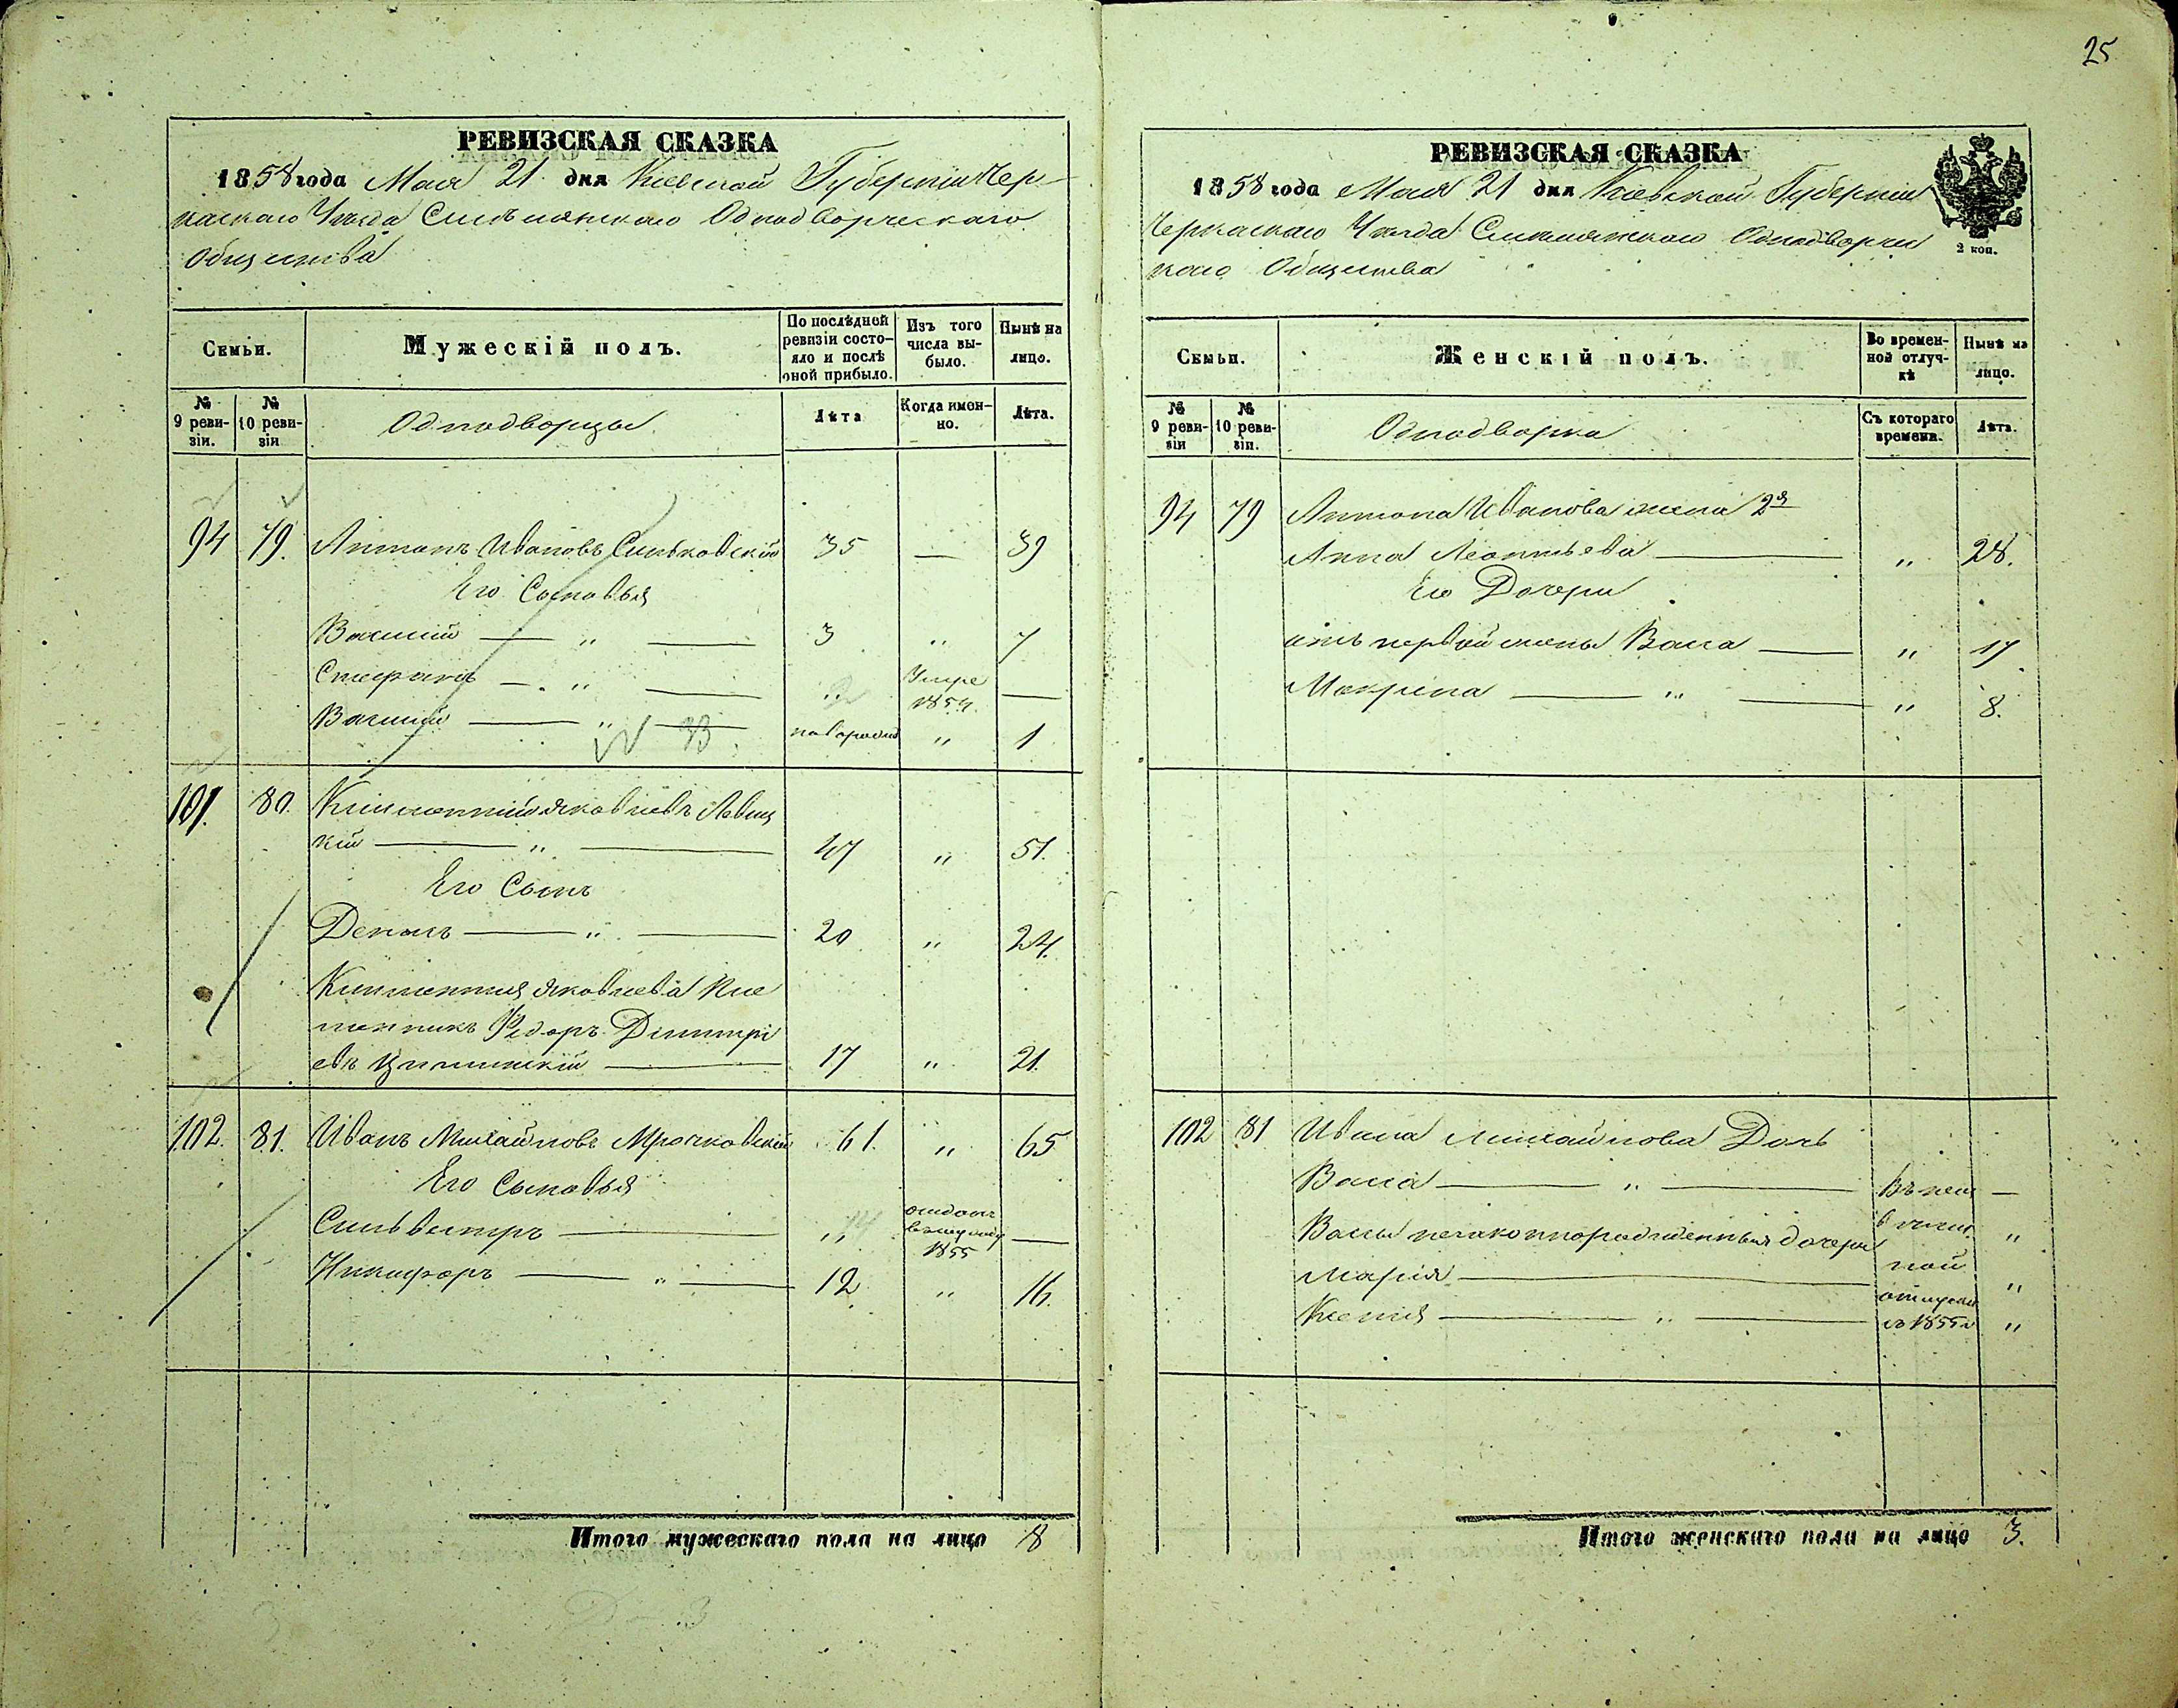 25
РЕВИЗСКАЯ СКАЗКА
1858 года Мая 21 дня Киевской Губерніи Чер
каскаго Уезда Смѣлянскаго Однодворческаго
Общества
Семьи.
Мужескій полъ.
По послѣдней ревизіи состояло и послѣ оной прибыло.
Изъ того числа выбыло.
Нынѣ на лицо.
№ 9 ревизіи.
№ 10 ревизіи
Однодворцы
Лѣта
Когда именно.
Лѣта.
94 79. Антонъ Ивановъ 35 — 39
Его Сыновья
Василий — „ — 3 „ 7
Стефанъ — „ — Умре 1854 —
Василий — „ — новорожд „ 1
33.
101. 80. Климентий Яковлевъ Левиц
кій — „ — 47 „ 51.
Его Сынъ
Демянъ — „ — 20 „ 24.
Климентия Яковлева Пле
мянникъ Федоръ Димитрі
евъ — 17 „ 21.
102. 81. Иванъ Михайловъ Мрочковскій 61. „ 65
Его Сыновья
Сильвестръ — 14 отданъ 1855 —
Никифоръ — „ — 12 „ 16.
Итого мужескаго пола на лицо 8
РЕВИЗСКАЯ СКАЗКА
1858 года Мая 21 дня Киевской Губерніи
Черкаскаго Уезда Смѣлянскаго Однодворчес
каго Общества
2 коп.
Семьи.
Женскій полъ.
Во временной отлучкѣ
Нынѣ на лицо.
№ 9 ревизіи
№ 10 ревизіи.
Однодворки
Съ котораго времени.
Лѣта.
94 79 Антона Иванова жена 2я
Анна Леонтьева — „ 28.
Его Дочери
отъ первой жены Васса — „ 17
Макрина — „ — „ 8.
102 81 Ивана Михайлова Дочь
Васса — „ — —
Вассы незаконнорожденныя дочери „
Марія — „
Ксенія — „ — „
отлучкѣ
съ 1855 г
Итого женскаго пола на лицо 3.